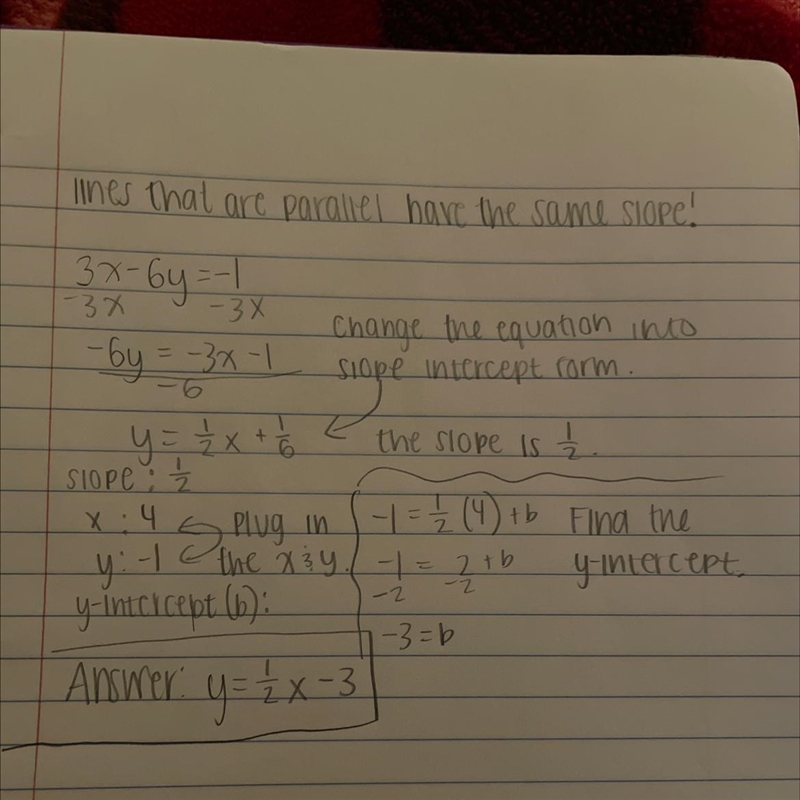 lines that are parallel have the same slope!
3x-6y=-1
-3x -3x
-6y = -3x -1
-6
change the equation into
slope intercept form.
y= 1/2 x + 1/6
the slope is 1/2.
slope: 1/2
x: 4
y: -1
plug in
the x & y.
y-intercept (b):
-1 = 1/2 (4) + b
-1 = 2 + b
-2 -2
-3 = b
Find the
y-intercept.
Answer: y= 1/2 x -3